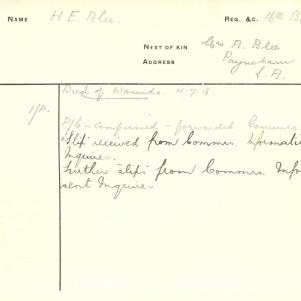 NAME H. E. Blee. REG. &C. 16th B
NEXT OF KIN Mrs A. Blee
ADDRESS Payneham
S.A.
Died of Wounds. 4-7-18.
P/C - confirmed - forwarded Commrs.
Slip received from Commrs. Informati
Inquirer.
Further slips from Commrs. Info
sent Inquirer.